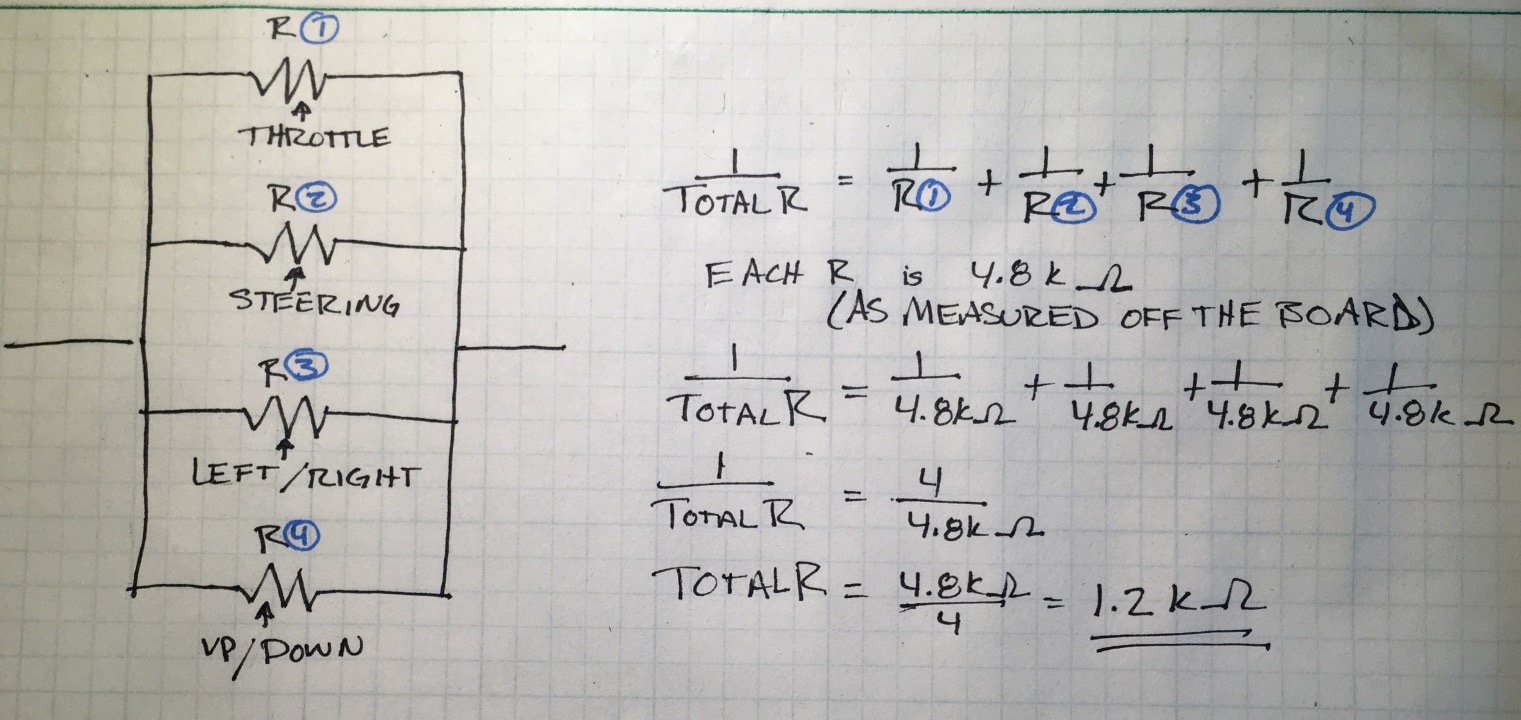 R①
THROTTLE
R②
STEERING
R③
LEFT/RIGHT
R④
UP/DOWN
1/TOTAL R = 1/R① + 1/R② + 1/R③ + 1/R④
EACH R is 4.8 k Ω
(AS MEASURED OFF THE BOARD)
1/TOTAL R = 1/4.8kΩ + 1/4.8kΩ + 1/4.8kΩ + 1/4.8k Ω
1/TOTAL R = 4/4.8k Ω
TOTAL R = 4.8kΩ/4 = 1.2 k Ω